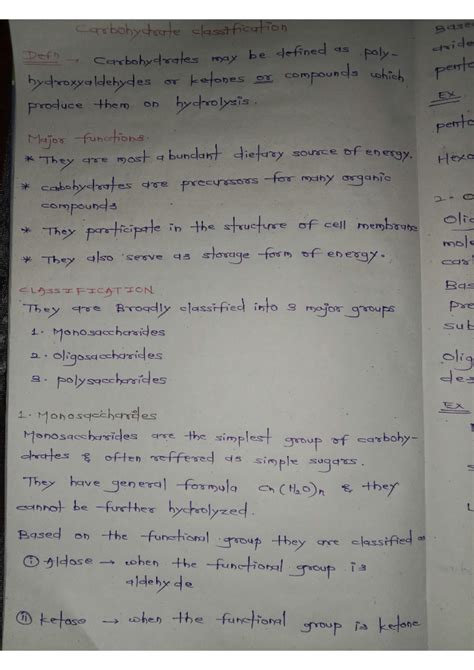 Carbohydrate classification
Defn → Carbohydrates may be defined as poly-
hydroxyaldehydes or ketones or compounds which
produce them on hydrolysis.
Major functions.
* They are most abundant dietary source of energy.
* cabohydrates are precursors for many organic
compounds
* They participate in the structure of cell membrane
* They also serve as storage form of energy.
CLASSIFICATION
They are Broadly classified into 3 major groups
1. Monosaccharides
2. oligosaccharides
3. polysaccharides
1. Monosaccharides
Monosaccharides are the simplest group of carbohy-
drates & often reffered as simple sugars.
They have general formula Cn(H2O)n & they
cannot be further hydrolyzed.
Based on the functional group they are classified as
(i) Aldose → when the functional group is
aldehyde
(ii) ketose → when the functional group is ketone
Base
aride
pento
Ex
pento
Hexo
2. O
Olig
mole
car
Bas
Pre
sub
Olig
des
Ex